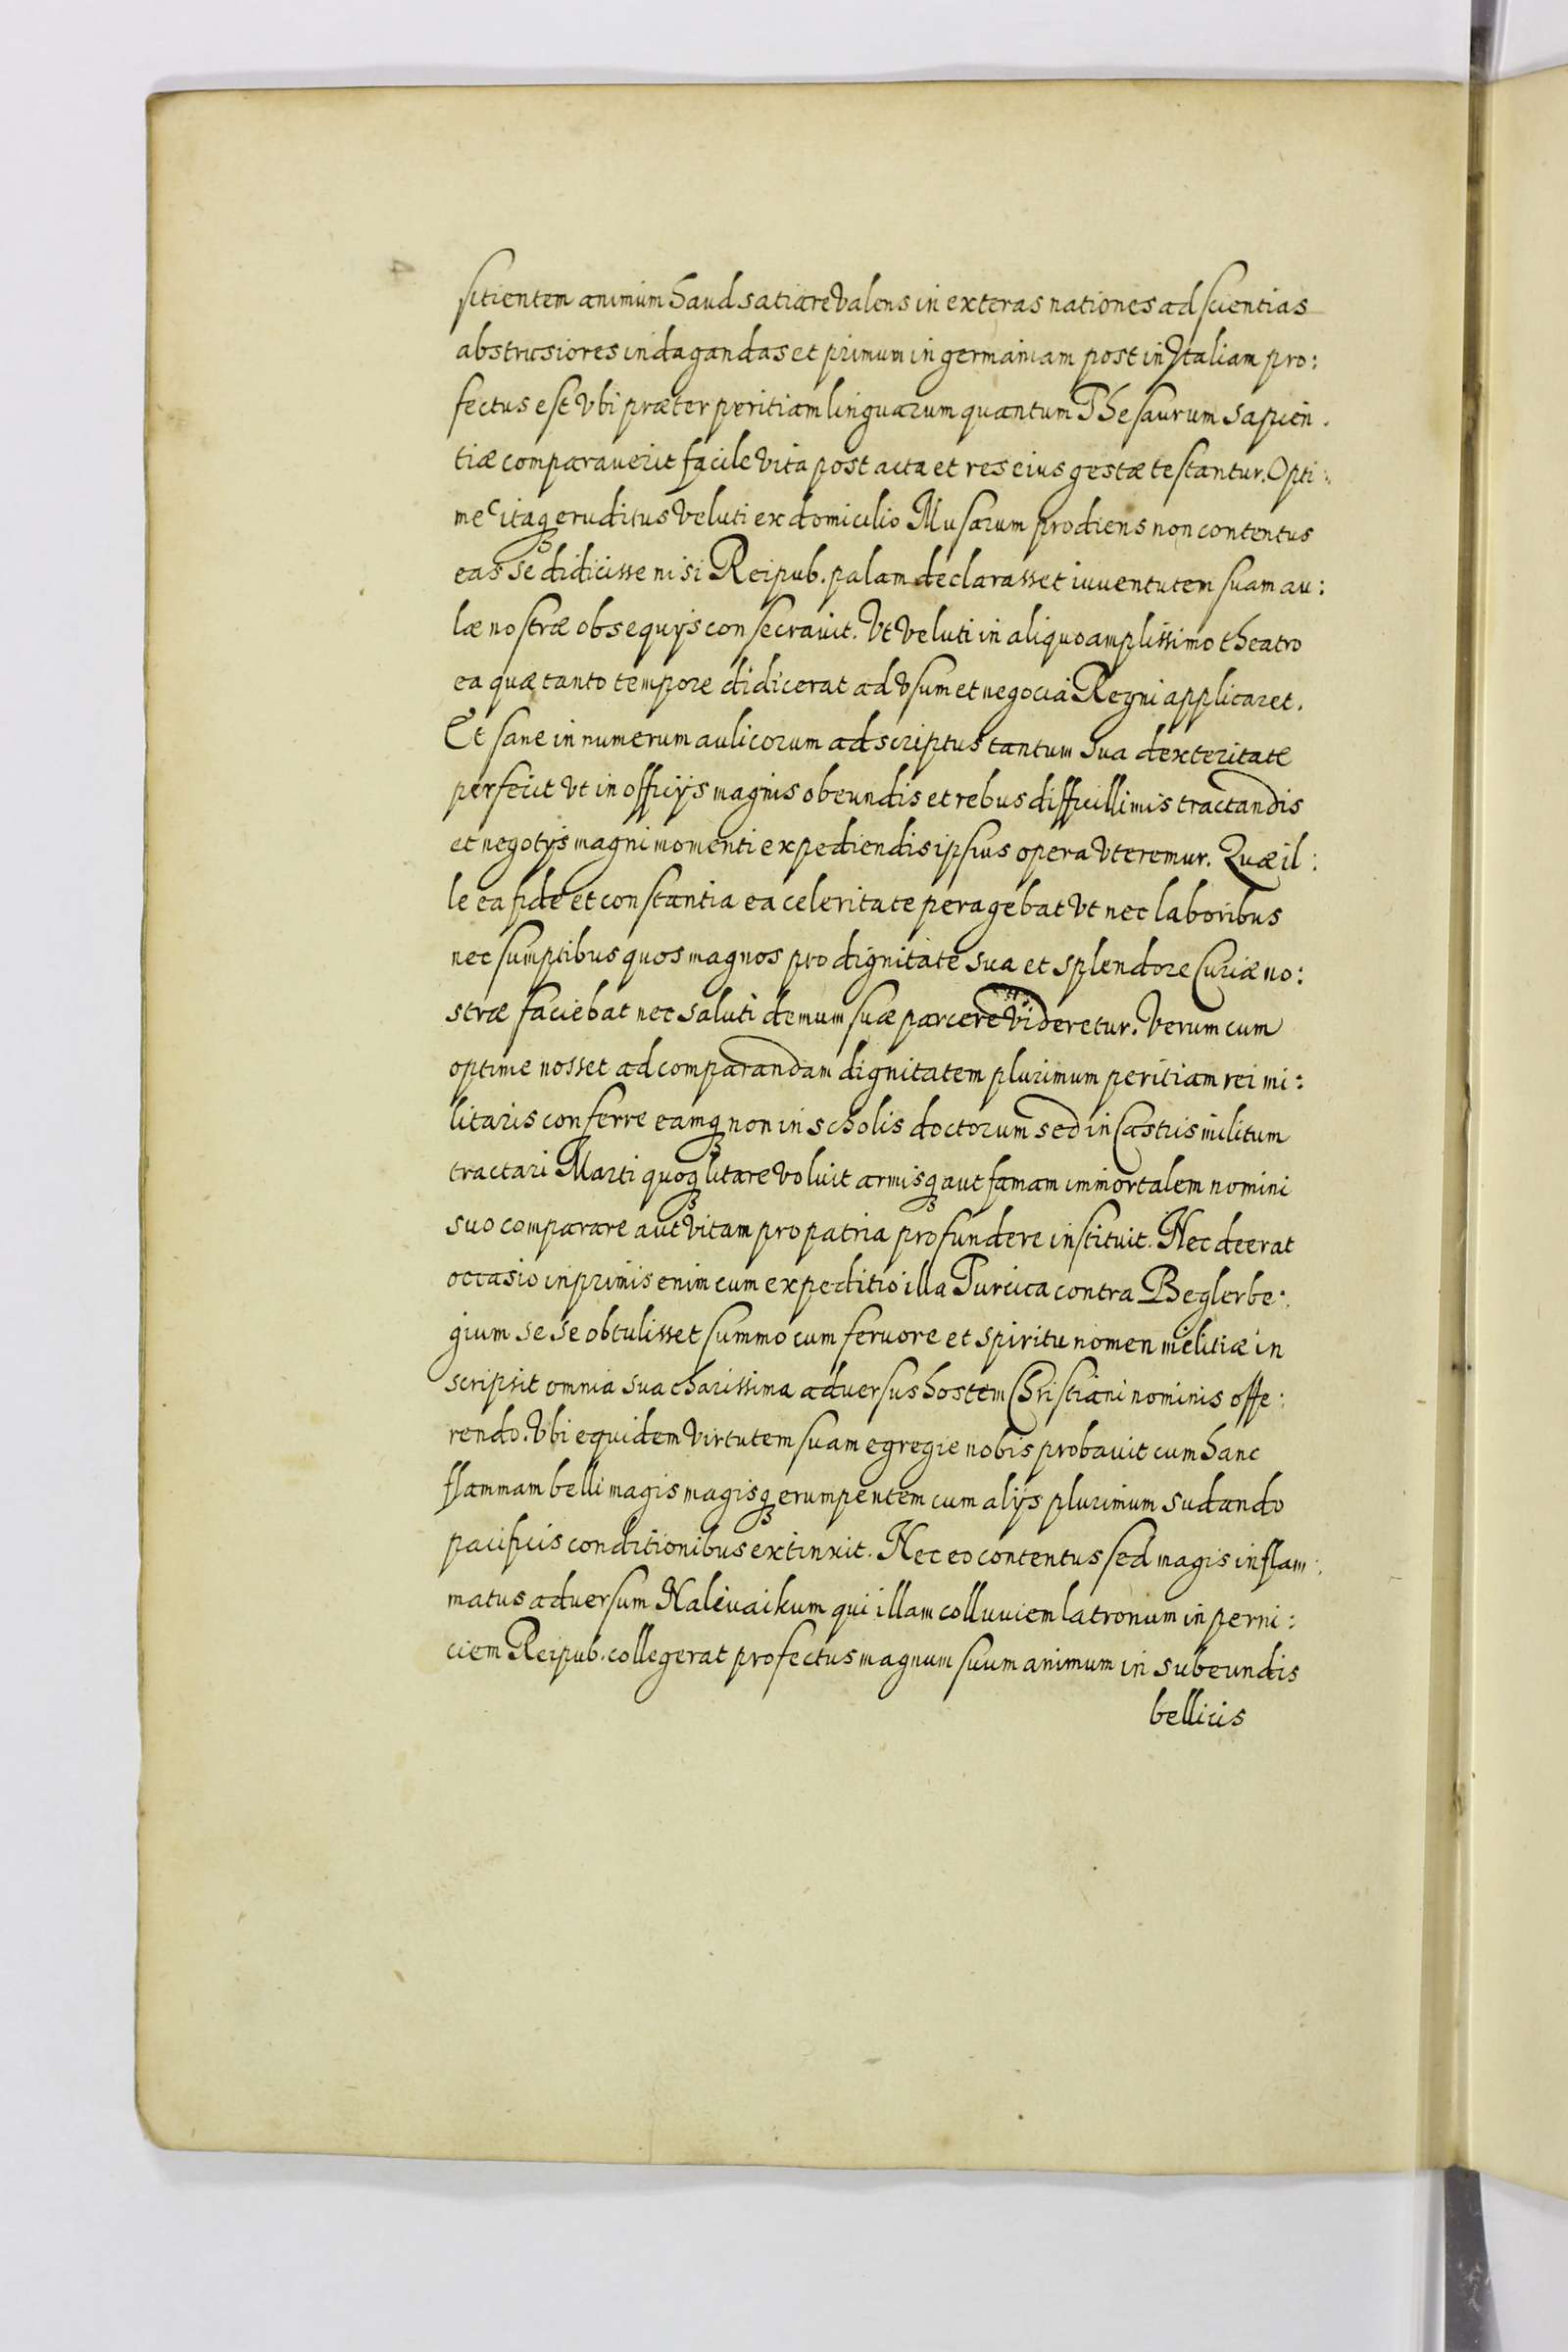 4
sitientem animum haud satiare valens in exteras nationes ad scientias
abstrusiores indagandas et primum in germaniam post in Italiam pro:
fectus est Vbi præter peritiam linguarum quantum Thesaurum sapien.
tiæ comparaverit facile vita post acta et res eius gestæ testantur. Opti:
me itaqꝫ eruditus Veluti ex domicilio Musarum prodiens non contentus
eas se didicisse nisi Reipub. palam declarasset iuventutem suam au:
læ nostræ obsequijs consecravit. Vt Veluti in aliquo amplissimo theatro
ea quæ tanto tempore didicerat ad Vsum et negocia Regni applicaret.
Et sane in numerum aulicorum adscriptus tantum sua dexteritate
perfecit Vt in officijs magnis obeundis et rebus difficillimis tractandis
et negotijs magni momenti expediendis ipsius opera Vteremur. Quæ il:
le ea fide et constantia ea celeritate peragebat Vt nec laboribus
nec sumptibus quos magnos pro dignitate sua et splendore Curiæ no:
stræ faciebat nec saluti demum suæ parcere Videretur. Verum cum
optime nosset ad comparandam dignitatem plurimum peritiam rei mi:
litaris conferre eamqꝫ non in scholis doctorum sed in Castris militum
tractari Marti quoqꝫ litare voluit armisqꝫ aut famam immortalem nomini
suo comparare aut Vitam pro patria profundere instituit. Nec deerat
occasio inprimis enim cum expeditio illa Turcica contra Beglerbe:
gium se se obtulisset summo cum fervore et spiritu nomen militiæ in
scripsit omnia sua charissima adversus hostem Christiani nominis offe:
rendo. Vbi equidem Virtutem suam egregie nobis probavit cum hanc
flammam belli magis magisqꝫ erumpentem cum alijs plurimum sudando
pacificis conditionibus extinxit. Nec eo contentus sed magis inflam:
matus adversum Nalivaikum qui illam colluviem latronum in perni:
ciem Reipub. collegerat profectus magnum suum animum in subeundis
bellicis